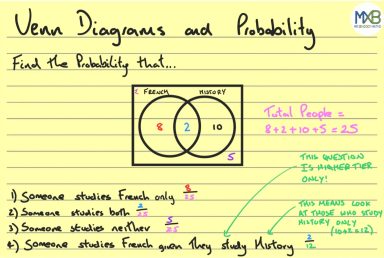 Venn Diagrams and Probability
MXB
Find the Probability that...
FRENCH HISTORY
8 2 10
5
Total People =
8+2+10+5=25
THIS QUESTION
IS HIGHER TIER
ONLY!
1) Someone studies French only 8/25
2) Someone studies both 2/25
3) Someone studies neither 5/25
4) Someone studies French given They study History 2/12
THIS MEANS LOOK
AT THOSE WHO STUDY
HISTORY ONLY
(10+2=12)